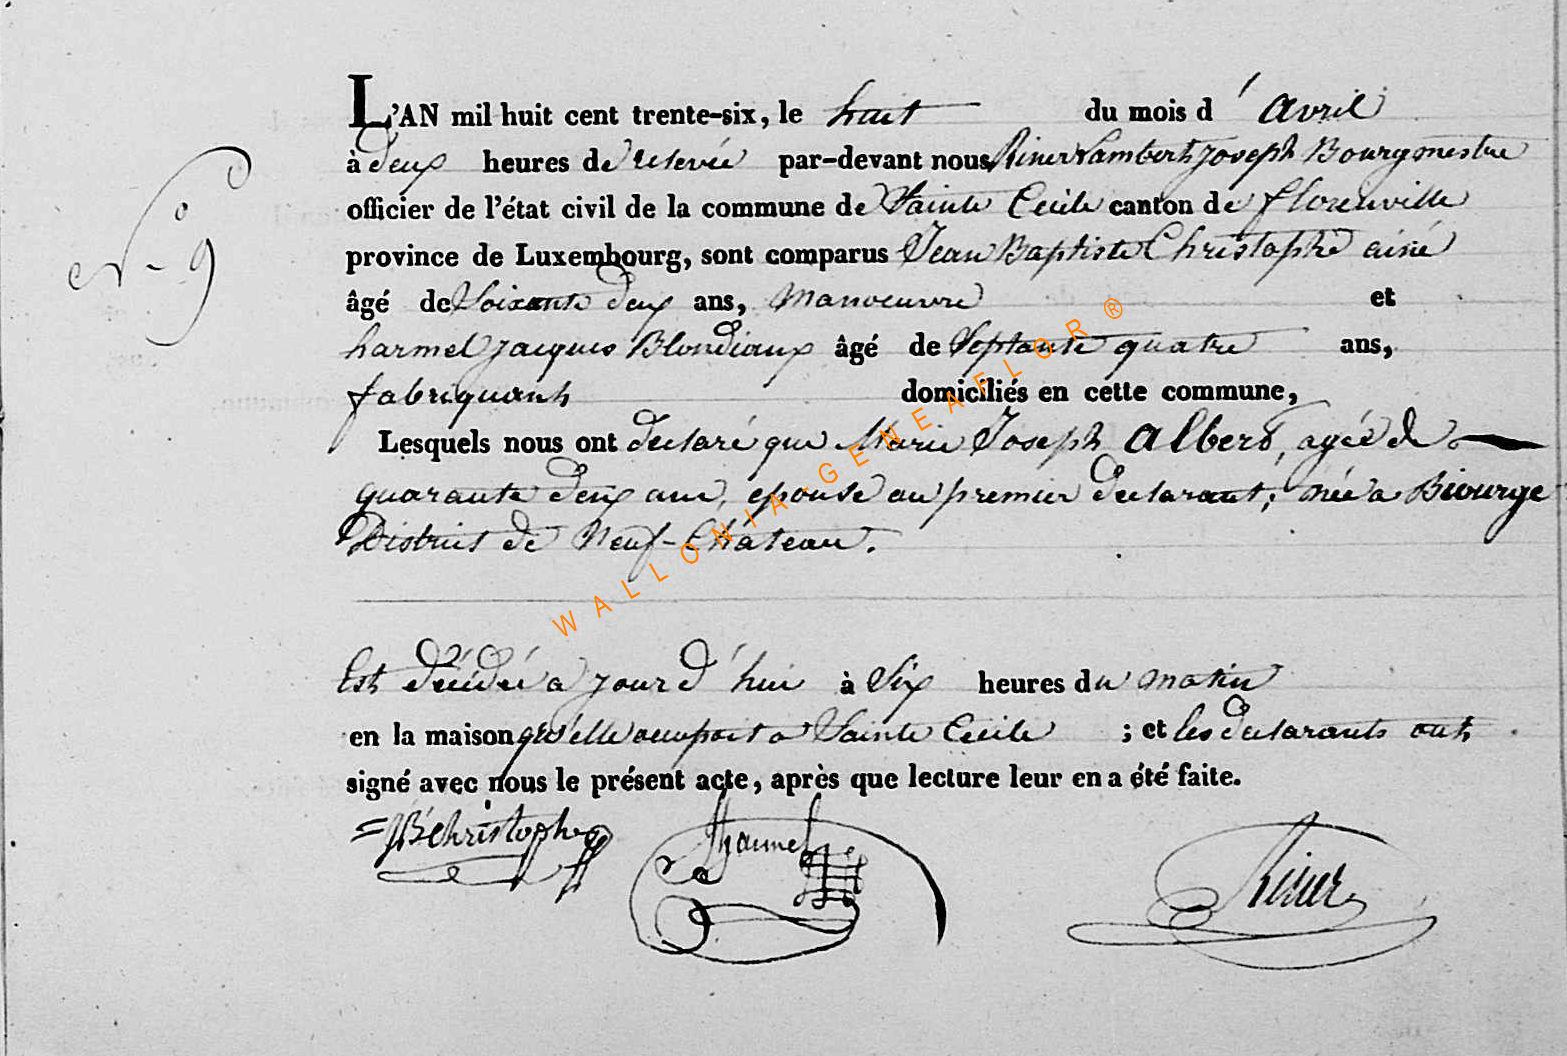 L'AN mil huit cent trente-six, le huit du mois d' avril
à deux heures de relevée par-devant nous Riner Lambert Joseph Bourgmestre
officier de l'état civil de la commune de Sainte Cecile canton de florenville
province de Luxembourg, sont comparus Jean Baptiste Christophe ainé
N° 9
âgé de Soixante deux ans, Manoeuvre et
harmel jacques Blondiaux âgé de Septante quatre ans,
fabriquant domiciliés en cette commune,
Lesquels nous ont declaré que Marie Joseph Albert, agée de
quarante deux ans, epouse au premier declarant, née a Biourge
District de Neuf-Château.
Est décédée a jour d'hui à Six heures du matin
en la maison qu'elle occupait a Sainte Cecile ; et les declarants ont
signé avec nous le présent acte, après que lecture leur en a été faite.
JB Christophe harmel Riner
WALLONIA-GENEAFLOR ®